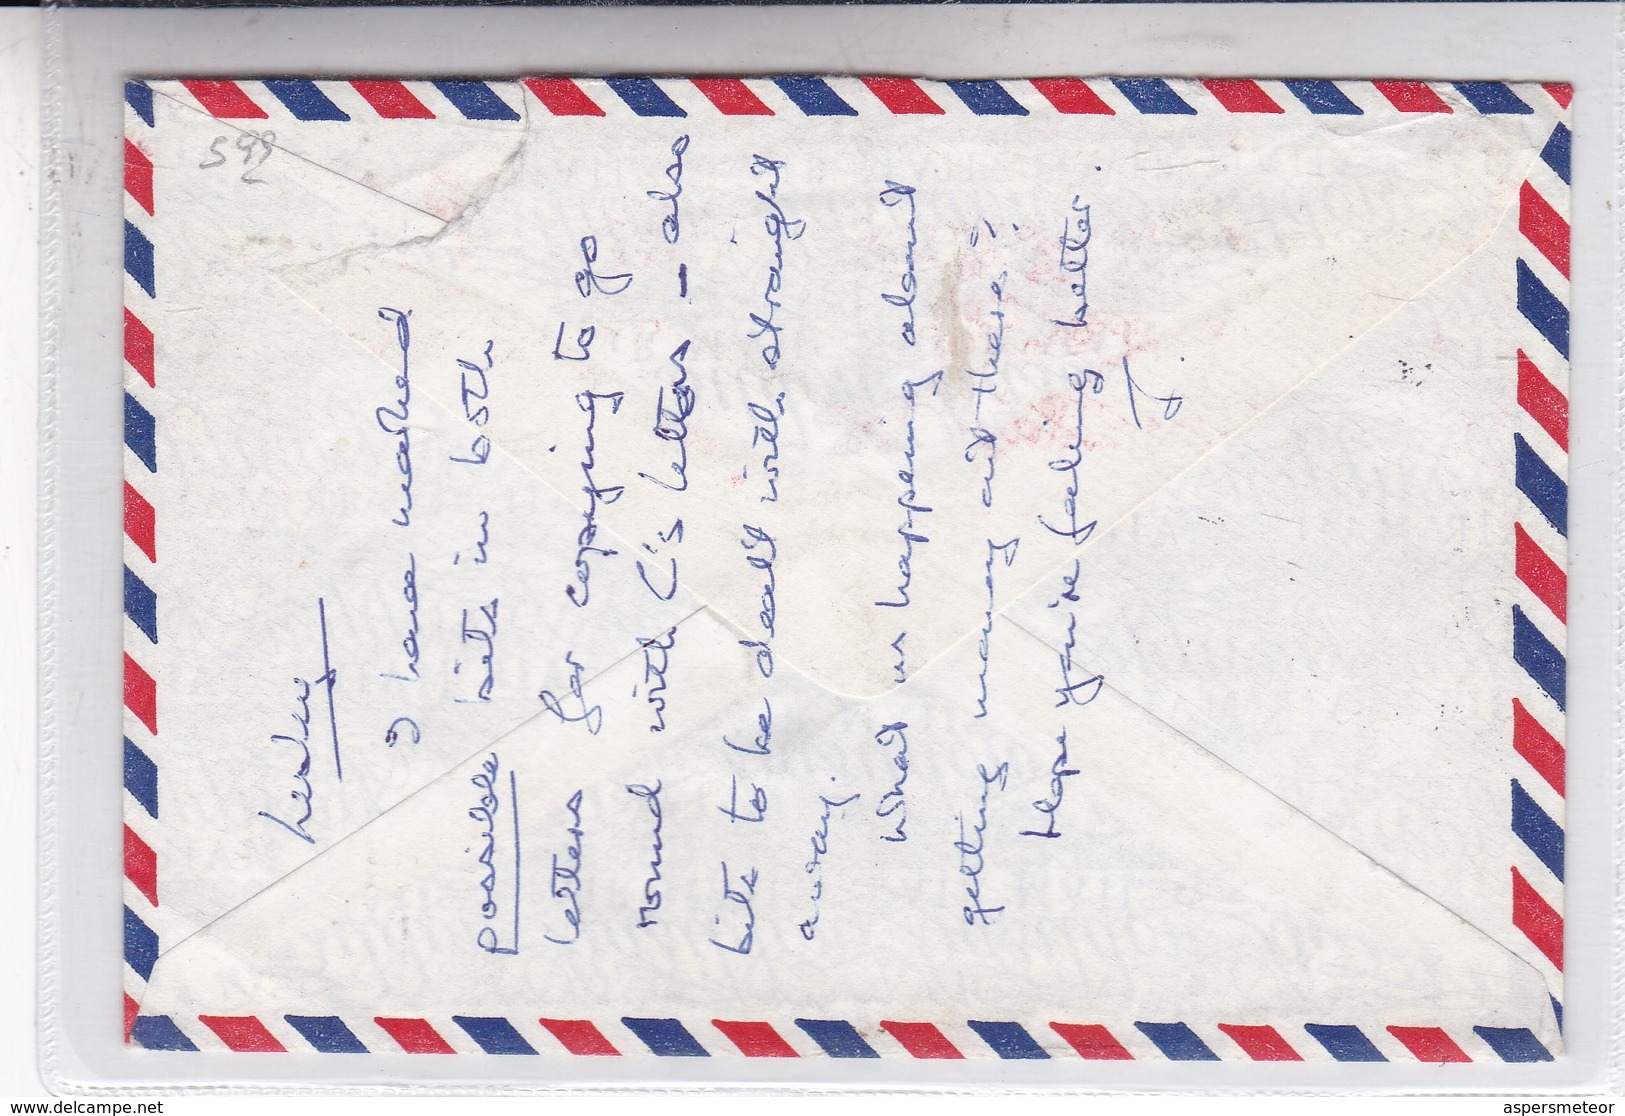 Lesley
I have marked
possible bits in both
letters for copying to go
round with C's letters - also
bits to be dealt with straight
away.
What is happening about
getting money out there?
Hope you're feeling better.
J.
599
www.delcampe.net
aspersmeteor